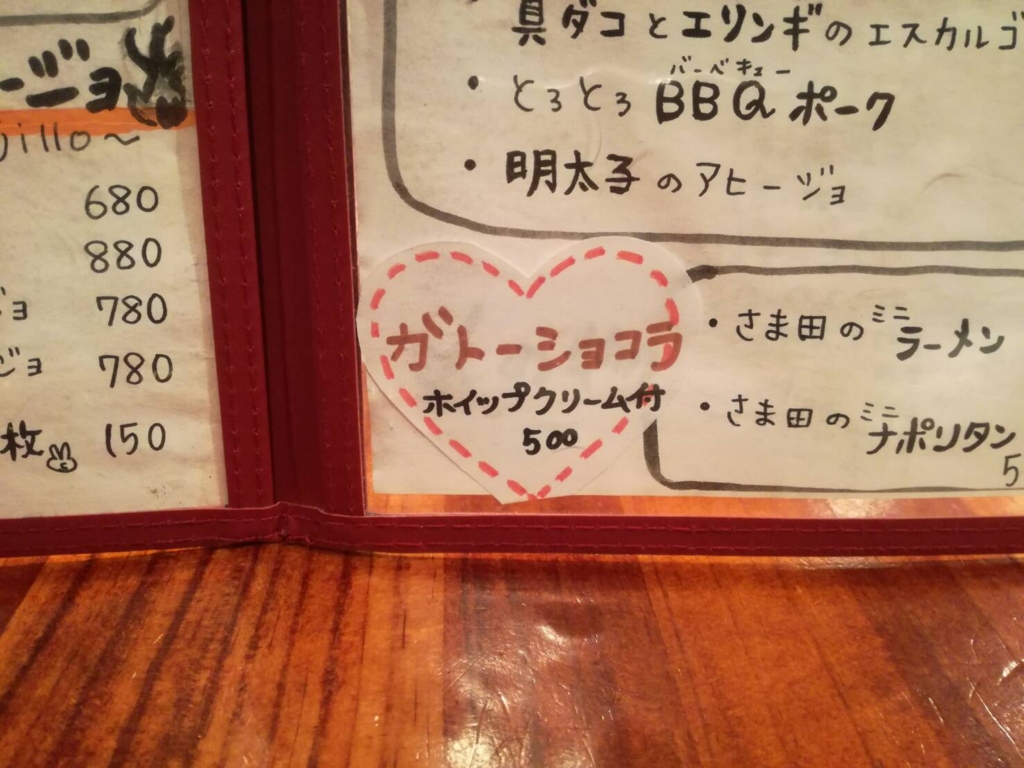 ージョ
jillo～
680
880
ョ 780
ジョ 780
枚 150
真ダコとエリンギのエスカルゴ
・とろとろBBQポーク
バーベキュー
・明太子のアヒージョ
ガトーショコラ
ホイップクリーム付
500
・さま田のミニラーメン
・さま田のミニナポリタン
5